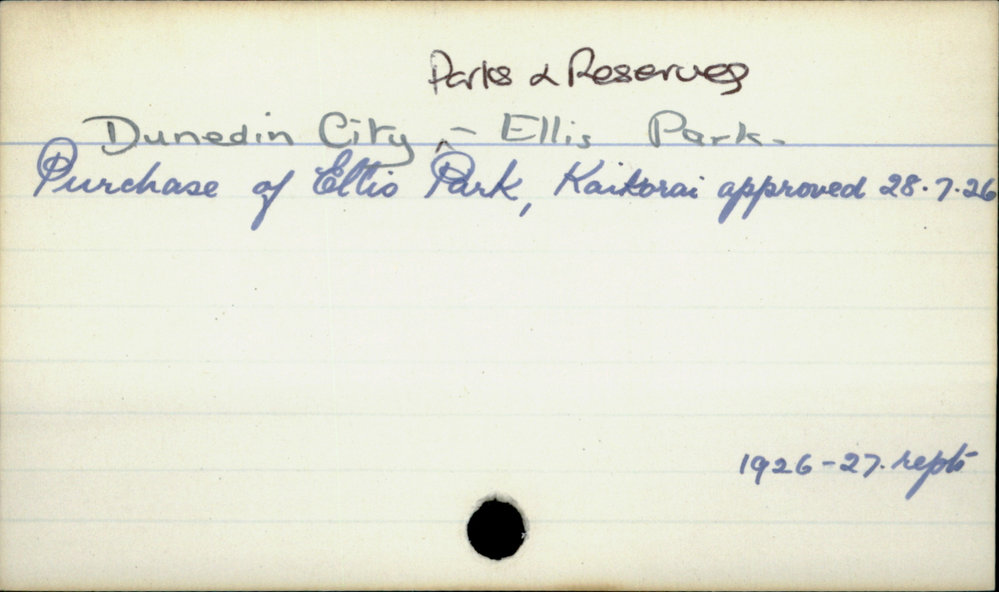 Parks & Reserves
Dunedin City - Ellis Park.
Purchase of Ellis Park, Kaikorai approved 28.7.26
1926-27. repts